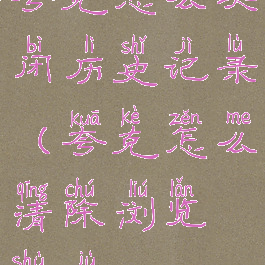 bì lì shǐ jì lù
闭历史记录
kuā kè zěn me
（夸克怎么
qīng chú liú lǎn
清除浏览
shù jù